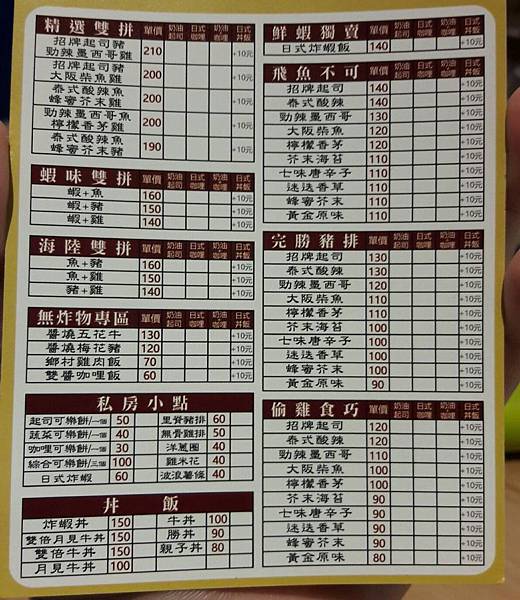 精選雙拼 單價 奶油起司 日式咖哩 奶油咖哩 日式丼飯
招牌起司豬
勁辣墨西哥雞 210 +10元
招牌起司豬
大阪柴魚雞 200 +10元
泰式酸辣魚
蜂蜜芥末雞 200 +10元
勁辣墨西哥魚
檸檬香茅雞 200 +10元
泰式酸辣魚
蜂蜜芥末豬 190 +10元
蝦味雙拼 單價 奶油起司 日式咖哩 奶油咖哩 日式丼飯
蝦+魚 160 +10元
蝦+豬 150 +10元
蝦+雞 140 +10元
海陸雙拼 單價 奶油起司 日式咖哩 奶油咖哩 日式丼飯
魚+豬 160 +10元
魚+雞 150 +10元
豬+雞 140 +10元
無炸物專區 單價 奶油起司 日式咖哩 奶油咖哩 日式丼飯
醬燒五花牛 130 +10元
醬燒梅花豬 120 +10元
鄉村雞肉飯 70 +10元
雙醬咖哩飯 60 +10元
私房小點
起司可樂餅/一個 50 里脊豬排 60
蔬菜可樂餅/一個 40 無骨雞排 50
咖哩可樂餅/一個 30 洋蔥圈 40
綜合可樂餅/三個 100 雞米花 40
日式炸蝦 60 波浪薯條 40
丼飯
炸蝦丼 150 牛丼 100
雙倍月見牛丼 150 勝丼 90
雙倍牛丼 150 親子丼 80
月見牛丼 100
鮮蝦獨賣 單價 奶油起司 日式咖哩 奶油咖哩 日式丼飯
日式炸蝦飯 140 +10元
飛魚不可 單價 奶油起司 日式咖哩 奶油咖哩 日式丼飯
招牌起司 140 +10元
泰式酸辣 140 +10元
勁辣墨西哥 130 +10元
大阪柴魚 120 +10元
檸檬香茅 120 +10元
芥末海苔 110 +10元
七味唐辛子 110 +10元
迷迭香草 110 +10元
蜂蜜芥末 110 +10元
黃金原味 110 +10元
完勝豬排 單價 奶油起司 日式咖哩 奶油咖哩 日式丼飯
招牌起司 130 +10元
泰式酸辣 130 +10元
勁辣墨西哥 120 +10元
大阪柴魚 110 +10元
檸檬香茅 110 +10元
芥末海苔 100 +10元
七味唐辛子 100 +10元
迷迭香草 100 +10元
蜂蜜芥末 100 +10元
黃金原味 90 +10元
偷雞食巧 單價 奶油起司 日式咖哩 奶油咖哩 日式丼飯
招牌起司 120 +10元
泰式酸辣 120 +10元
勁辣墨西哥 110 +10元
大阪柴魚 100 +10元
檸檬香茅 100 +10元
芥末海苔 90 +10元
七味唐辛子 90 +10元
迷迭香草 90 +10元
蜂蜜芥末 90 +10元
黃金原味 80 +10元